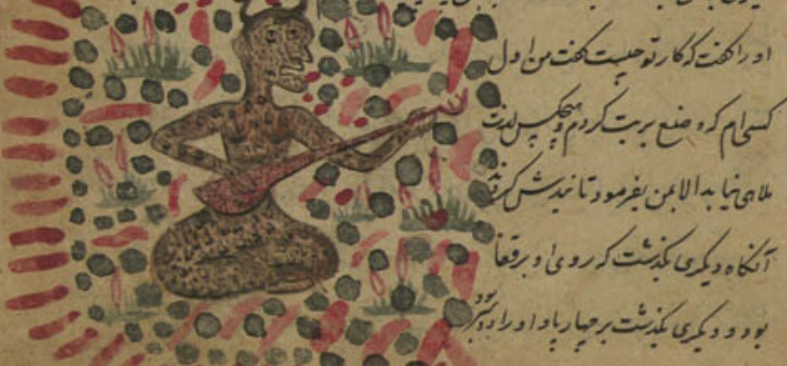 او را گفت که کار تو چیست گفت من اول
کسی ام که وضع بربت کردم و هیچکس لذت
ملاهی نیابد الا بمن بفرمود تا بندش کردند
آنگاه دیگری بگذشت که روی او برقعا
بود و دیگری بگذشت بر چهار پا و او را دو سر بود